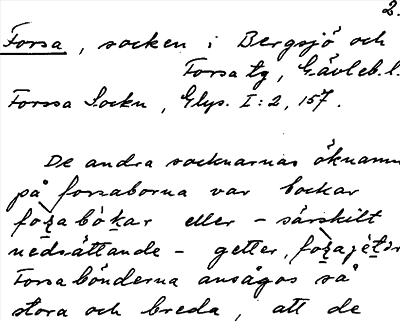 2.
Forsa, socken i Bergsjö och
Forsa tg, Gävleb.l.
Forssa Sockn, Glys. I:2, 157.
De andra socknarnas öknamn
på forsaborna var bockar
eller – särskilt
nedsättande – getter,
Forsabönderna ansågos så
stora och breda, att de